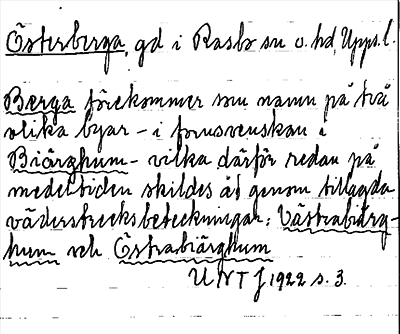 Österberga, gd i Rasbo sn o. hd, Upps. l.
Berga förekommer som namn på två
olika byar – i fornsvenskan i
Biärghum – vilka därför redan på
medeltiden skildes åt genom tillagda
väderstrecksbeteckningar: Västrabiärg-
hum och Östrabiärghum
UNT J 1922 s. 3.